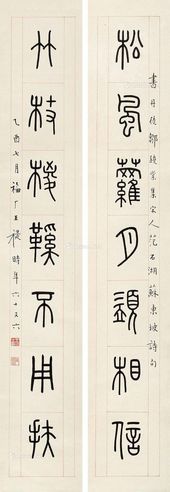 書丹徒鄒集宋人范石湖蘇東坡詩句
松風蘿月相信
竹杖椶鞵不用扶
乙酉七月福厂王禔時年六十又六